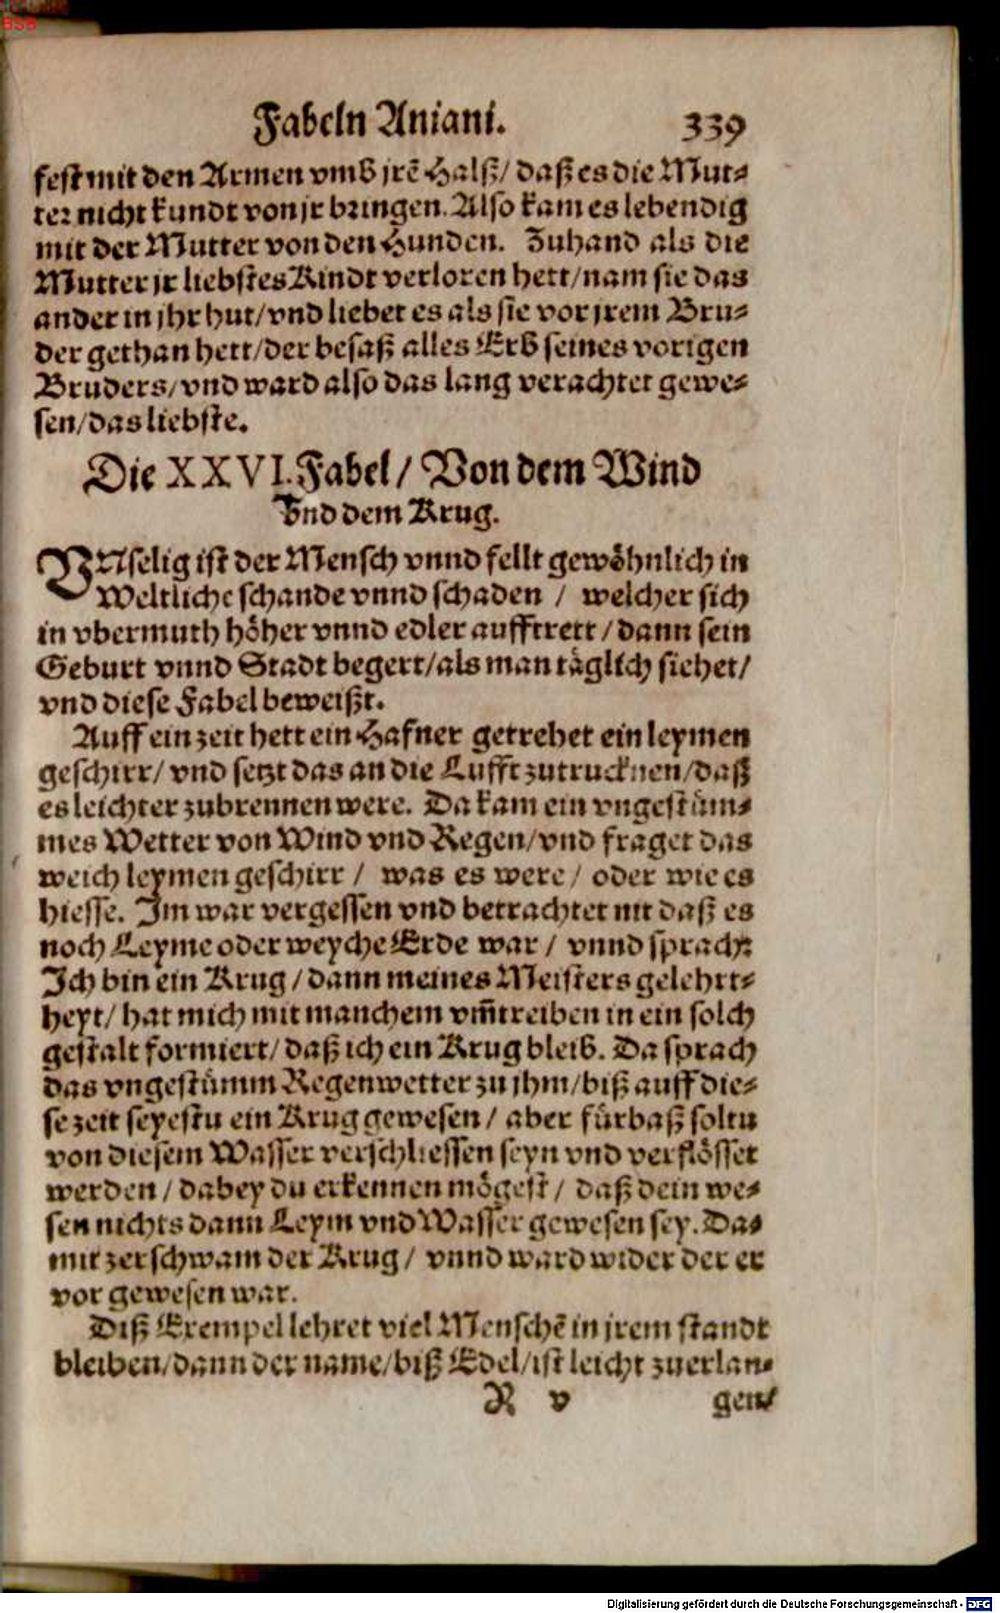 BSB
Fabeln Aniani. 339
fest mit den Armen vmb jrẽ Halß/ daß es die Mut-
ter nicht kundt von jr bringen. Also kam es lebendig
mit der Mutter von den Hunden. Zuhand als die
Mutter jr liebstes Kindt verloren hett/ nam sie das
ander in jhr hut/ vnd liebet es als sie vor jrem Bru-
der gethan hett/ der besaß alles Erb seines vorigen
Bruders/ vnd ward also das lang verachtet gewe-
sen/ das liebste.
Die XXVI. Fabel/ Von dem Wind
vnd dem Krug.
VNselig ist der Mensch vnnd fellt gewöhnlich in
Weltliche schande vnnd schaden / welcher sich
in vbermuth höher vnnd edler aufftrett / dann sein
Geburt vnnd Stadt begert/ als man täglich siehet/
vnd diese Fabel beweißt.
Auff ein zeit hett ein Hafner getrehet ein leymen
geschirr/ vnd setzt das an die Lufft zutrucknen/ daß
es leichter zubrennen were. Da kam ein vngestüm-
mes Wetter von Wind vnd Regen/ vnd fraget das
weich leymen geschirr / was es were/ oder wie es
hiesse. Im war vergessen vnd betrachtet nit daß es
noch Leyme oder weyche Erde war / vnnd sprach:
Ich bin ein Krug / dann meines Meisters gelehrt-
heyt/ hat mich mit manchem vm̃treiben in ein solch
gestalt formiert/ daß ich ein Krug bleib. Da sprach
das vngestümm Regenwetter zu jhm/ biß auff die-
se zeit seyestu ein Krug gewesen / aber fürbaß soltu
von diesem Wasser verschliessen seyn vnd verflösset
werden / dabey du erkennen mögest / daß dein we-
sen nichts dann Leym vnd Wasser gewesen sey. Da-
mit zerschwam der Krug / vnnd ward wider der er
vor gewesen war.
Diß Exempel lehret viel Menschẽ in jrem standt
bleiben/ dann der name/ biß Edel/ ist leicht zuerlan-
R v gen/
Digitalisierung gefördert durch die Deutsche Forschungsgemeinschaft - DFG